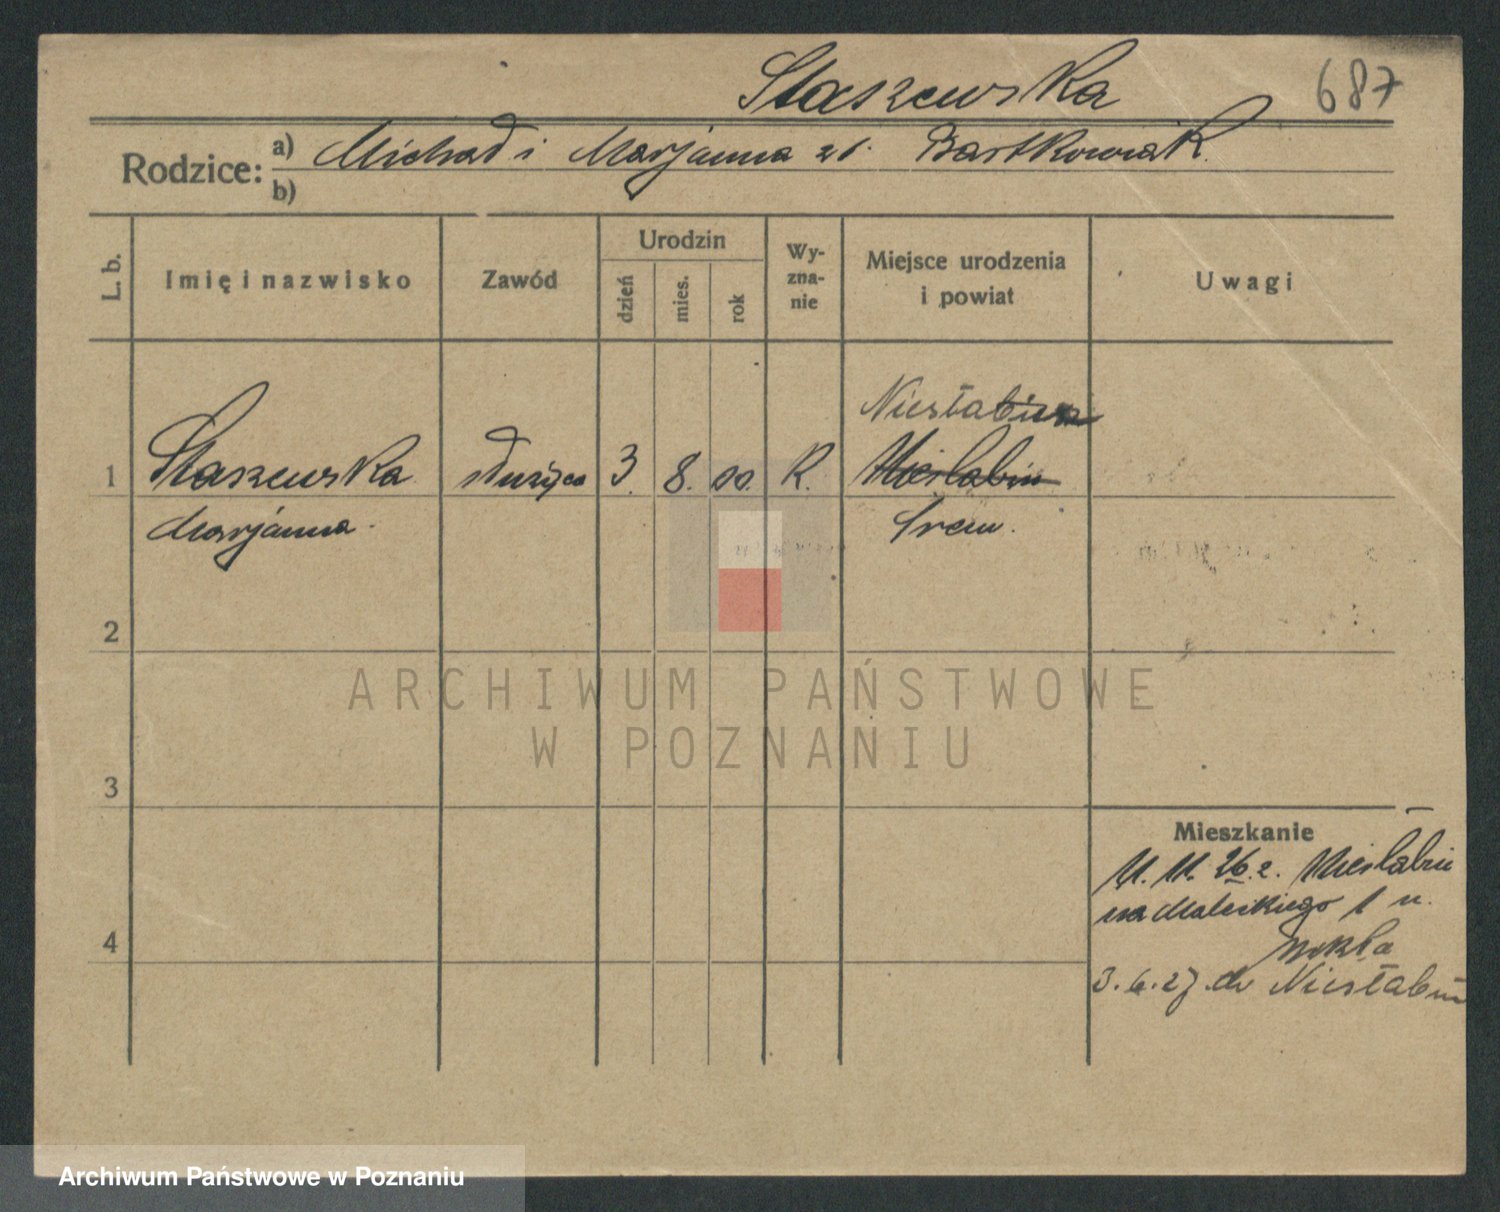 Staszewska
687
Rodzice:
a) Michał i Marjanna z d. Bartkowiak.
b)
L. b.
Imię i nazwisko
Zawód
Urodzin
dzień
mies.
rok
Wy-
zna-
nie
Miejsce urodzenia
i powiat
Uwagi
1
Staszewska
Marjanna.
służąca
3.
8.
00.
R.
Niesłabin
Niesłabin
Śrem.
2
3
4
ARCHIWUM PAŃSTWOWE
W POZNANIU
Mieszkanie
11. 11. 26. z. Niesłabin
na Małeckiego 1 u.
3.6.27. do Niesłabin
Archiwum Państwowe w Poznaniu